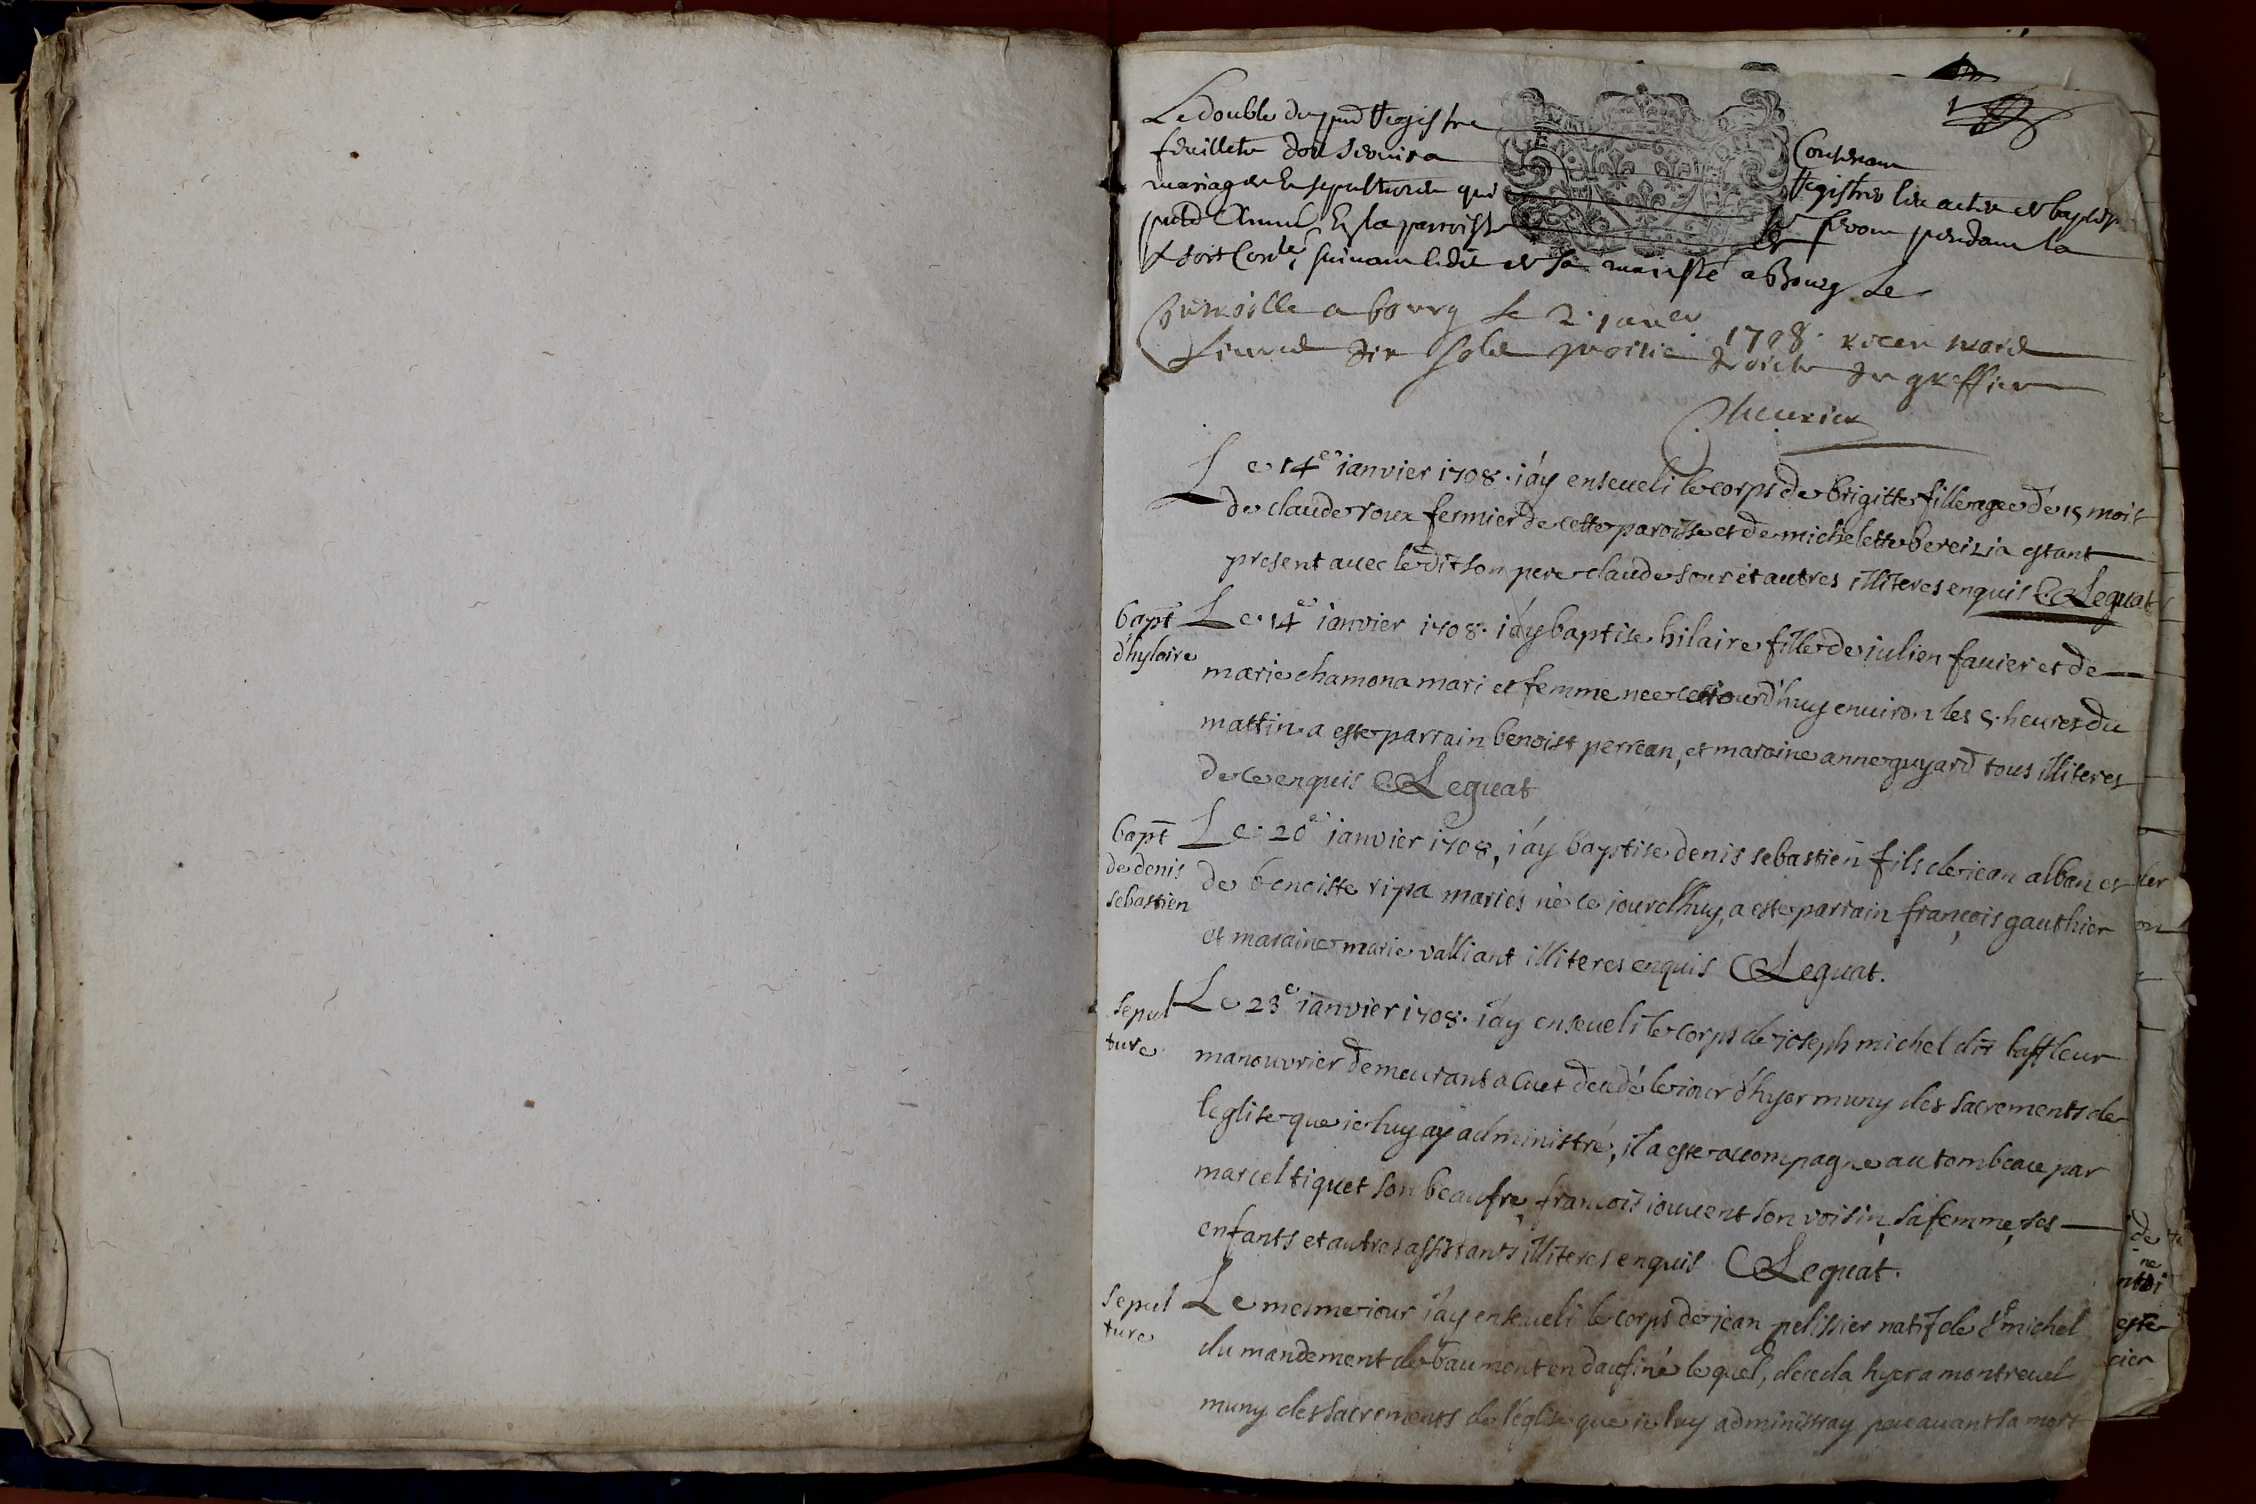 Le double du pnt Registre Contenant
feuillets dou servira Registre les actes de bapt
mariages Et sepultures qui se feront pendant la
pnte Annee En la parroisse de
suivant ledit de sa majesté a Bourg Le
a bourg le 2. janer 1708. receu
Livre des sols droicts du greffier
Le 14e ianvier 1708. i'ay enseueli le corps de brigitte fille agee de 15 mois
de claude roux fermier de cette paroisse et de michelette bereizia estant
present auec ledit son pere claude sour et autres illiteres enquis C Leguat
bapt Le 14e ianvier 1708. i'ay baptise hilaire fille de iulien fauier et de
d'hylaire marie chamona mari et femme nee cejourd'huy enuiron les 5. heures du
mattin a este parrain benoist perrean, et maraine anne guyard tous illiteres
de ce enquis C Leguat
bapt Le 20e ianvier 1708, i'ay baptise denis sebastien fils de iean alban et
de denis de benoiste ripa mariés né le iourd'huy, a este parrain françois gauthier
sebastien et maraine marie valliant illiteres enquis C Leguat.
sepul Le 23e ianvier 1708. i'ay enseueli le corps de ioseph michel dit baffleur
ture manouvrier demeurant a Cuet decedé le iour d'hyer muny des sacrements de
leglise que ie luy ay administré, il a este accompagne au tombeau par
marcel tiquet son beaufre, francois iouuent son voisin, sa femme, ses
enfants et autres assistants illiteres enquis C Leguat.
sepul Le mesme iour i'ay enseueli le corps de iean pelissier natif de St michel
ture du mandement de baumont en daufiné lequel, deceda hyer a montreuel
muny des sacrements de l'église que ie luy administray peu auant sa mort